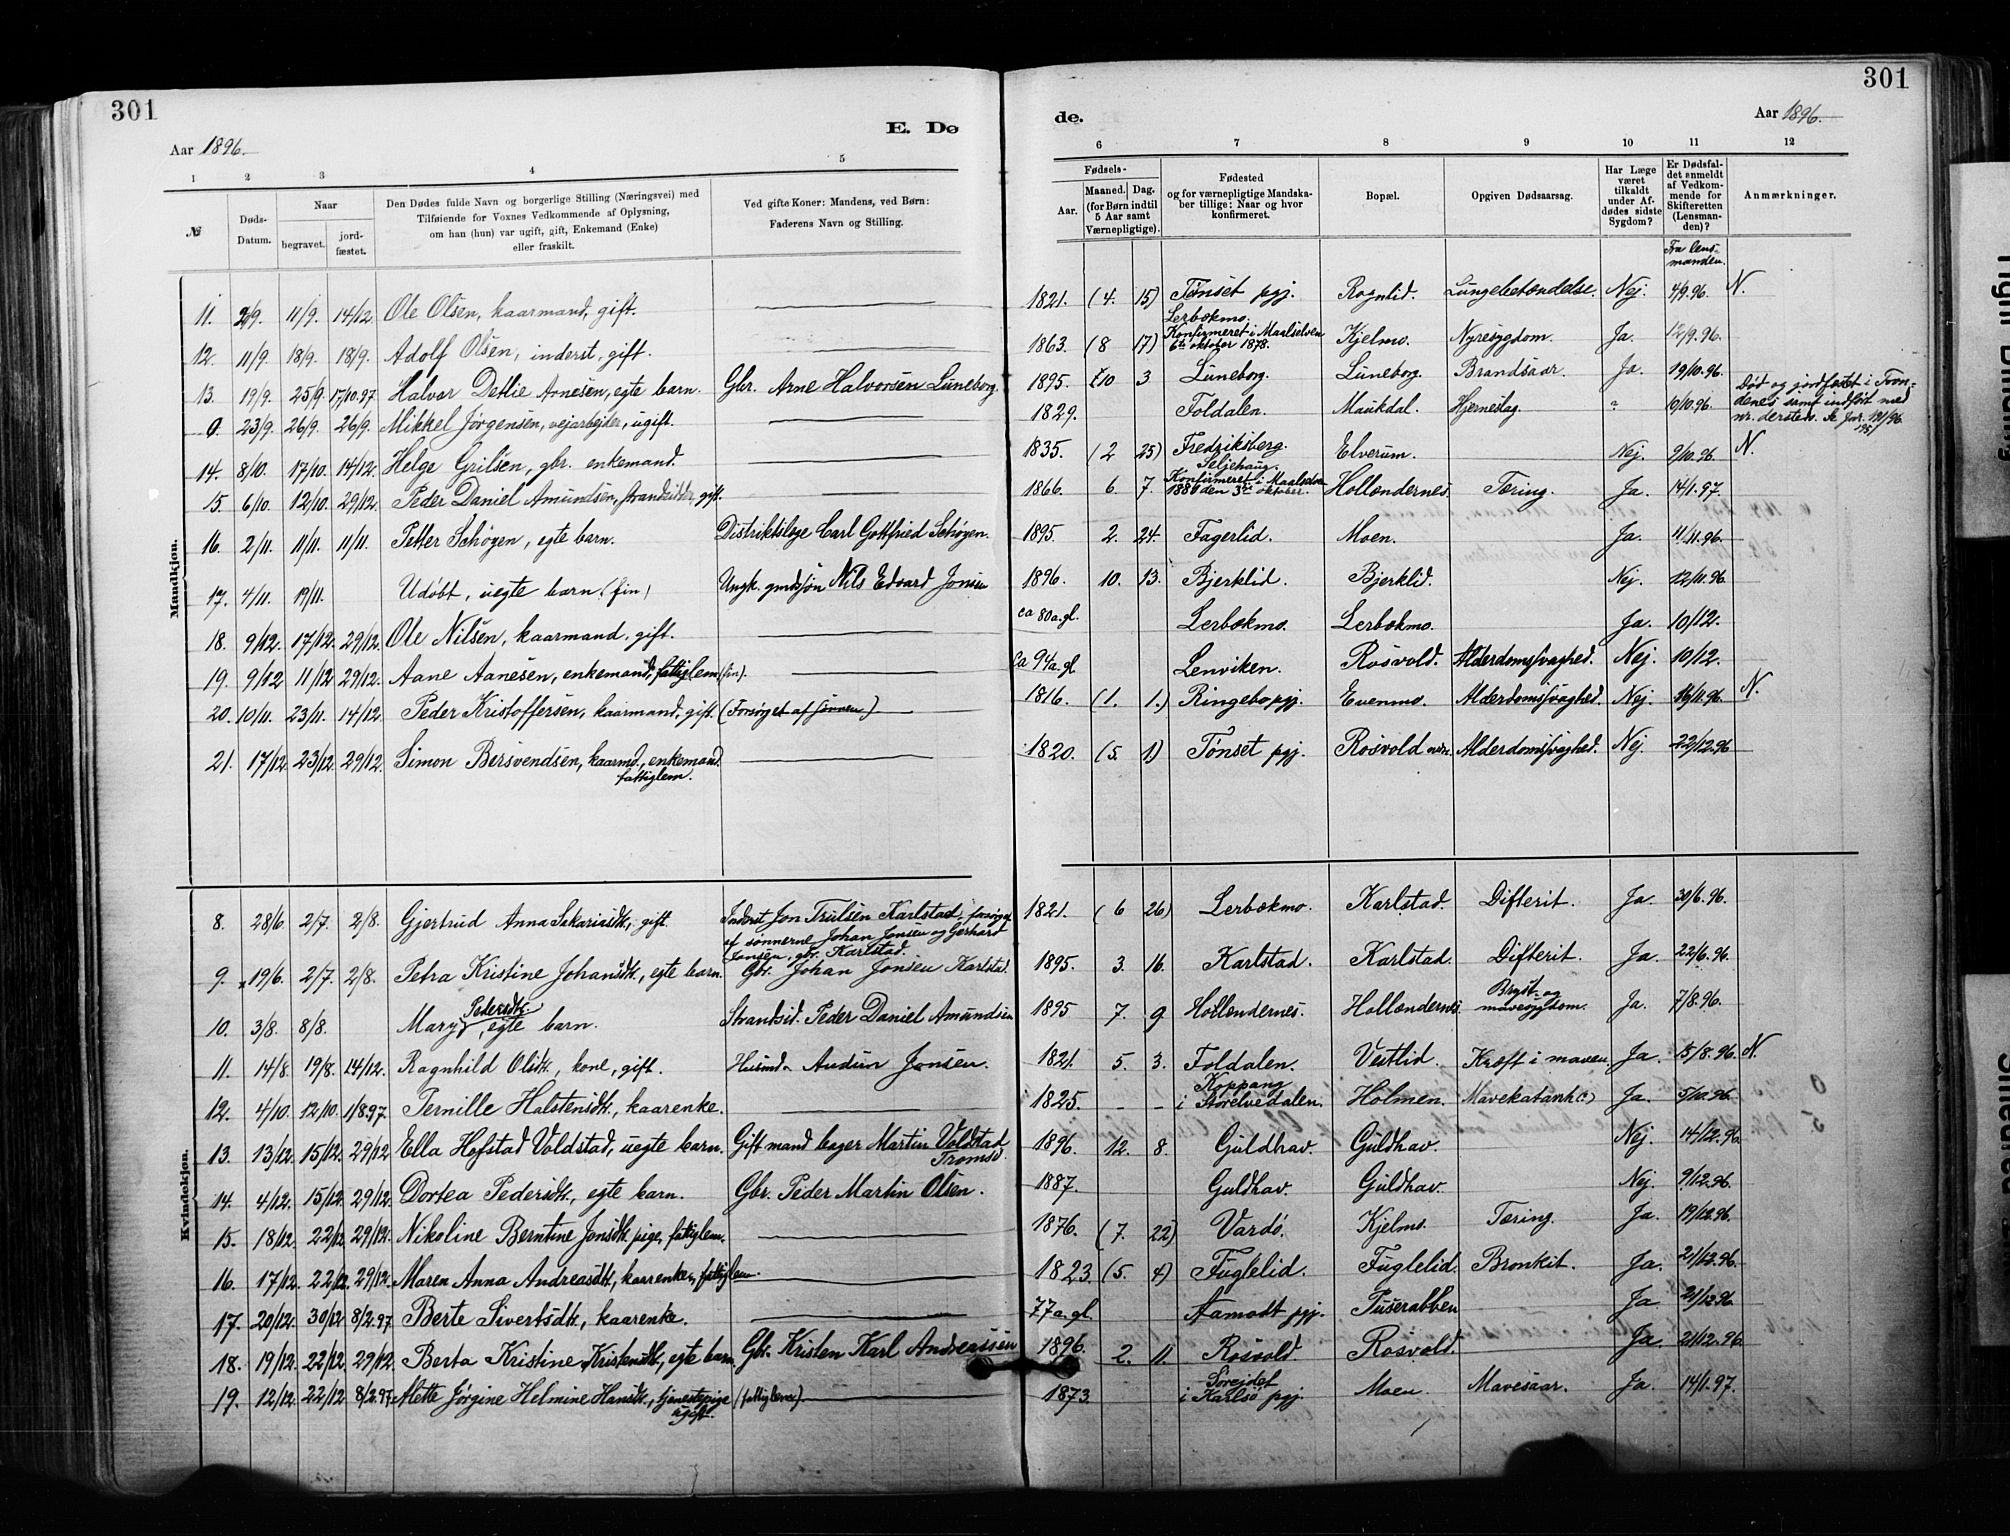 301
301
E. Dø
de.
Aar 1896.
Aar 1896.
1 2 3 4 5
6 7 8 9 10 11 12
№
Døds-Datum.
Naar
begravet.
jord-fæstet.
Den Dødes fulde Navn og borgerlige Stilling (Næringsvei) med
Tilføiende for Voxnes Vedkommende af Oplysning,
om han (hun) var ugift, gift, Enkemand (Enke)
eller fraskilt.
Ved gifte Koner: Mandens, ved Børn:
Faderens Navn og Stilling.
Fødsels-
Aar.
Maaned. Dag.
(for Børn indtil
5 Aar samt
Værnepligtige).
Fødested
og for værnepligtige Mandska-
ber tillige: Naar og hvor
konfirmeret.
Bopæl.
Opgiven Dødsaarsag.
Har Læge
været
tilkaldt
under Af-
dødes sidste
Sygdom?
Er Dødsfal-
det anmeldt
af Vedkom-
mende for
Skifteretten
(Lensman-
den)?
Anmærkninger.
Fra lens-
manden.
Mandkjøn.
11. 2/9. 11/9. 14/12 Ole Olsen, kaarmand, gift. 1821. (4. 15) Tønset pgj. Rognlid. Lungebetændelse. Nej. 4/9.96. N.
12. 11/9. 18/9. 18/9. Adolf Olsen, inderst, gift. 1863. (8 17) Lerbækmo. Konfirmeret i Maalselven 6te oktober 1878. Kjelmo. Nyresygdom. Ja. 12/9.96.
13. 19/9. 25/9. 17/10.97. Halvor Detlie Arnesen, egte barn. Gbr. Arne Halvorsen Luneborg. 1895. 10 3 Luneborg. Luneborg. Brandsaar. Ja. 19/10.96.
0. 23/9. 26/9. 26/9. Mikkel Jørgensen, vejarbejder, ugift. 1829. Foldalen. Maukdal. Hjerneslag. ? 10/10.96. Død og jordfæstet i Tron-
denes samt indført med
nr. dersteds. Se jør. 191/96.
195/
14. 8/10. 17/10. 14/12. Helge Grilsen, gbr. enkemand. 1835. (2 25) Fredriksberg. Elverum. Nej. 9/10.96. N.
15. 6/10. 12/10. 29/12. Peder Daniel Amundsen, strandsidder, gift. 1866. 6. 7. Seljehaug. Konfirmeret i Maalselven 1880 den 3die oktober. Hollændernes. Tæring. Ja. 14/1.97.
16. 2/11. 11/11. 11/11. Petter Schøyen, egte barn. Distriktslæge Carl Gottfried Schøyen. 1895. 2. 24. Fagerlid. Moen. Ja. 11/11.96.
17. 4/11. 19/11. Udøbt, uegte barn (fin) Ungk. gmdssøn Nils Edvard Jonsen 1896. 10. 13. Bjerklid. Bjerklid. Nej. 12/11.96
18. 9/12. 17/12. 29/12. Ole Nilsen, kaarmand, gift. ca 80 a. gl. Lerbækmo. Lerbækmo. Ja. 10/12.
19. 9/12 11/12 29/12. Aane Aanesen, enkemand, fattiglem (fin). ca 94 a. gl Lenviken. Rosvold. Alderdomssvaghed. Nej. 10/12.
20. 10/11. 23/11. 14/12 Peder Kristoffersen, kaarmand, gift. (Forsørget af sønnen) 1816. (1. 1.) Ringebo pgj. Evenmo. Alderdomssvaghed. Nej. 16/11.96. N.
21. 17/12 23/12 29/12. Simon Bersvendsen, kaarmd., enkemand. fattiglem. 1820. (5. 1) Tønset pgj. Rosvold Alderdomssvaghed. Nej. 22/12.96
Kvindekjøn.
8. 28/6 2/7. 2/8. Gjertrud Anna Sakariasdtr., gift. Inderst Jon Trulsen Karlstad, forsørget
af sønnerne Johan Jonsen og Gerhard
Jonsen, gbr. Karlstad. 1821. (6 26) Lerbækmo. Karlstad. Difterit. Ja. 30/6.96.
9. 19/6. 2/7. 2/8. Petra Kristine Johansdtr., egte barn. Gbr. Johan Jonsen Karlstad. 1895. 3. 16. Karlstad. Karlstad. Difterit. Ja. 22/6.96.
10. 3/8. 8/8. Mary Pedersdtr., egte barn. Strandsid. Peder Daniel Amundsen 1895 7. 9 Hollændernes. Hollændernes. Bryst- og mavesygdom. Ja. 7/8.96.
11. 14/8. 19/8. 14/12. Ragnhild Olsdtr., kone, gift. Husmd. Audun Jonsen. 1821. 5. 3. Foldalen. Vestlid. Kræft i maven Ja. 15/8.96. N.
12. 4/10. 12/10. 1/8 97 Pernille Halstensdtr., kaarenke. 1825. - - Koppang i Storelvedalen. Holmen. Mavekatarrh Ja. 5/10.96.
13. 13/12 15/12. 29/12 Ella Hofstad Voldstad, uegte barn. Gift mand bager Martin Voldstad Tromsø. 1896. 12. 8. Guldhav. Guldhav. Nej. 14/12.96
14. 4/12. 15/12 29/12 Dortea Pedersdtr., egte barn. Gbr. Peder Martin Olsen. 1887. Guldhav. Guldhav. Nej. 9/12.96.
15. 18/12. 22/12 29/12. Nikoline Berntine Jonsdtr. pige, fattiglem. 1876. (7. 22) Vardø. Kjelmo. Tæring. Ja. 19/12.96.
16. 17/12. 22/12 29/12. Maren Anna Andreasdtr., kaarenke, fattiglem. 1823. (5. 4) Fuglelid. Fuglelid. Bronkit. Ja. 21/12.96.
17. 20/12. 30/12 8/2.97. Berte Sivertsdtr., kaarenke. 77 a. gl. Aamodt pgj. Tuserabben Ja. 21/12.96
18. 19/12. 22/12 29/12. Berta Kristine Kristensdtr., egte barn. Gbr. Kristen Karl Andreassen 1896. 2. 11. Rosvold. Rosvold. Ja. 21/12.96.
19. 12/12. 22/12 8/2.97. Mette Jørgine Helmine Hansdtr., tjenestepige ugift. (fattiglem). 1873. Sørejdet i Karlsø pgj. Moen. Mavesaar. Ja. 14/1.97.